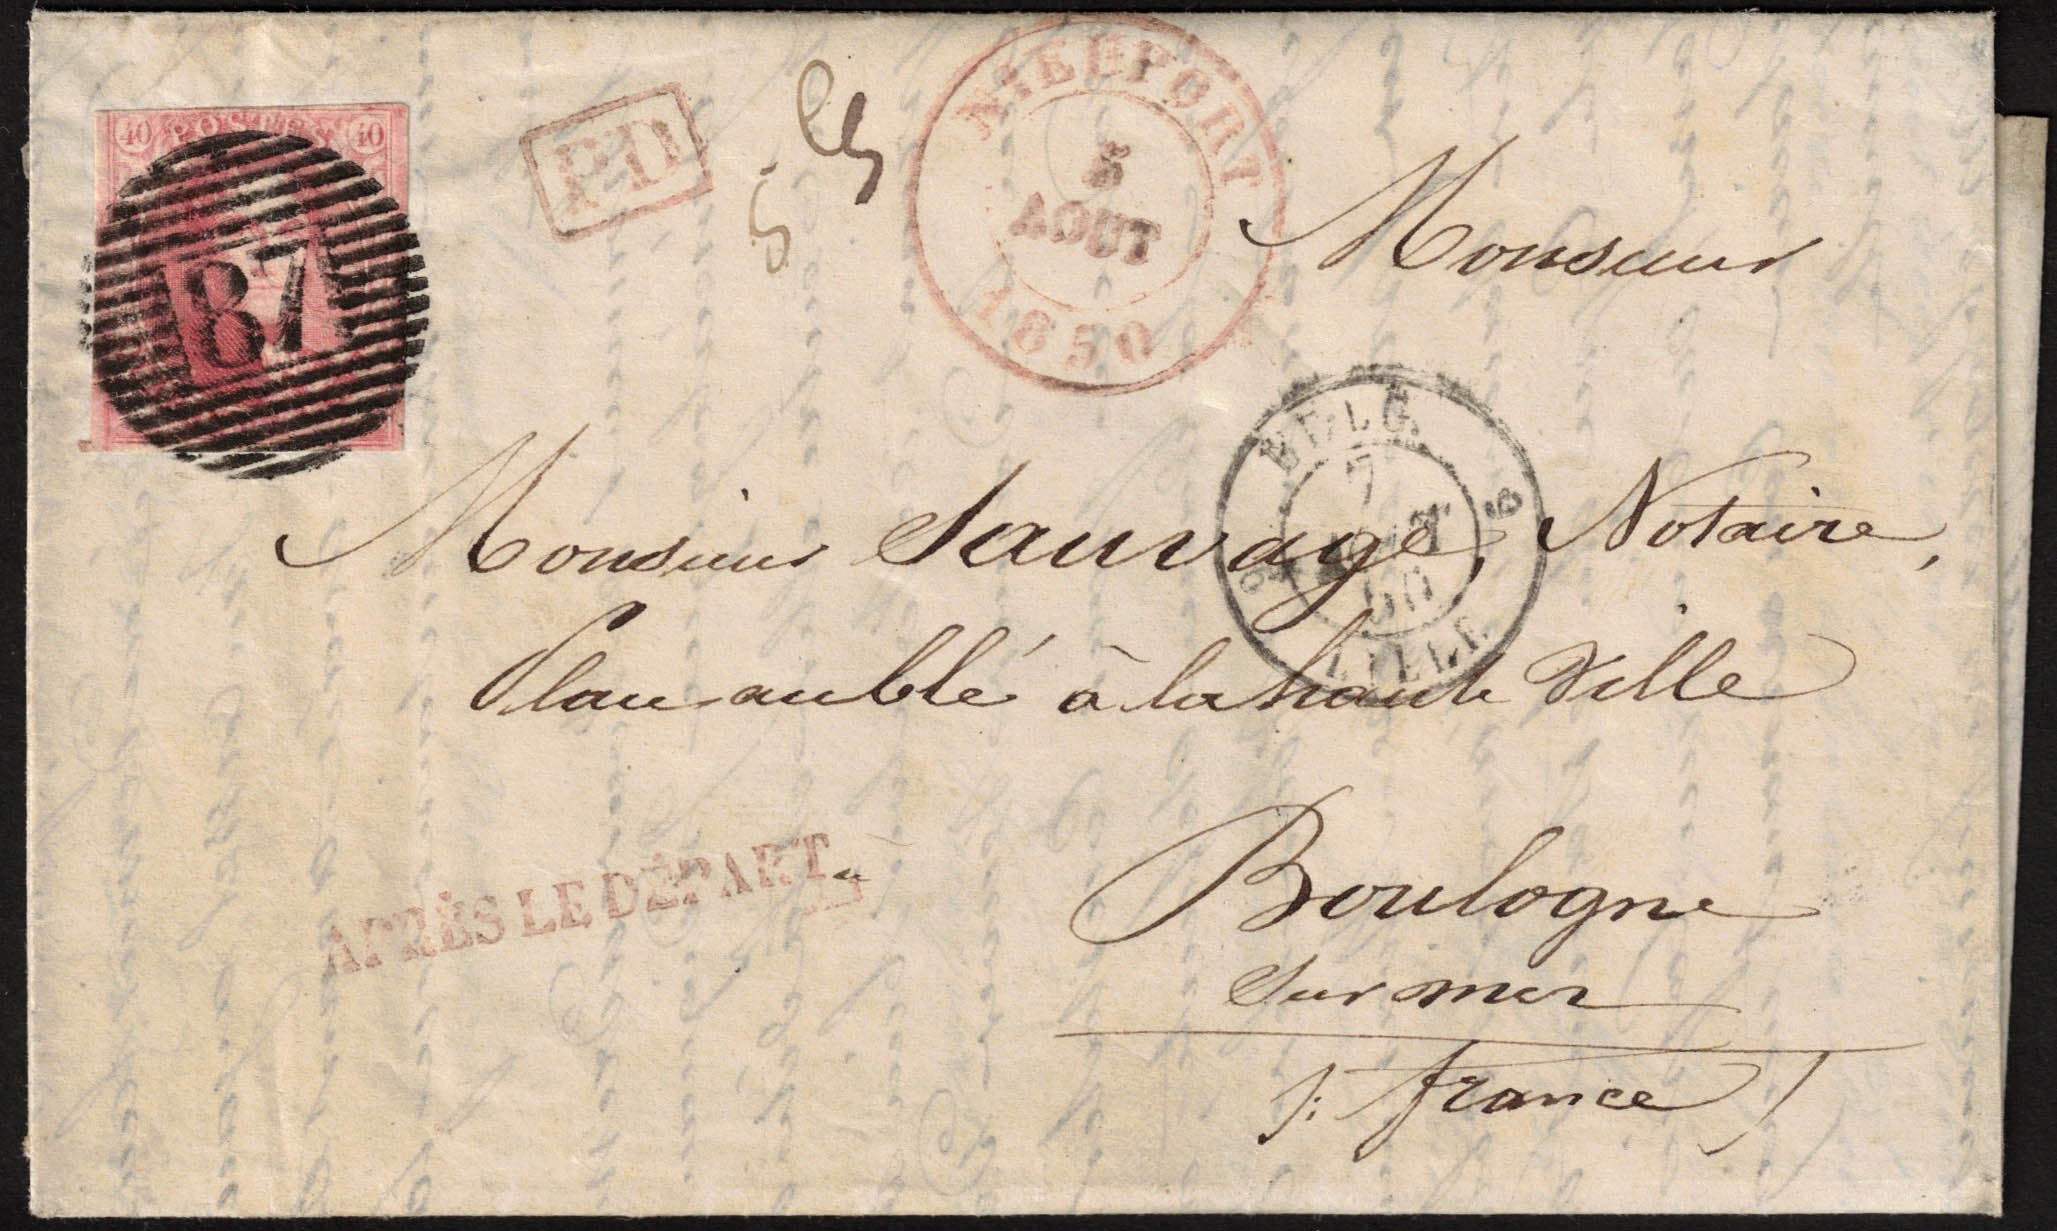 40 POSTES 40
87
PD
NIEUPORT
5
AOUT
1850
Monsieur
BELG.
7
AOUT
50
LILLE
Monsieur Sauvage, Notaire,
Place au blé à la haute Ville
APRÈS LE DÉPART
à
Boulogne
sur mer
/: france /